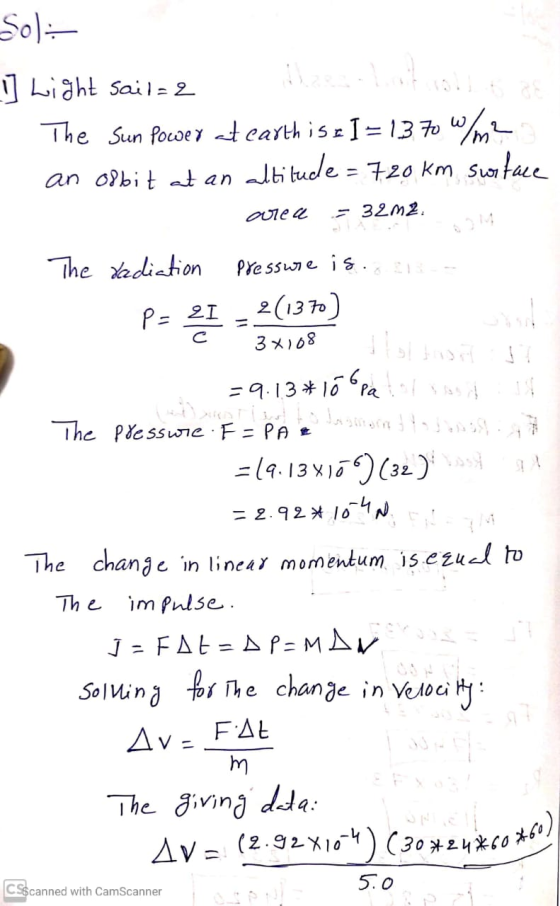 Sol:-
1] Light Sail = 2
The Sun Power at earth is = I = 1370 w/m2
an orbit at an altitude = 720 km surface
area = 32m2.
The radiation Pressure is.
P = 2I/C = 2(1370)/3×10^8
= 9.13*10^-6 Pa
The Pressure F = PA =
= (9.13×10^-6)(32)
= 2.92*10^-4 N
The change in linear momentum is equal to
The impulse.
J = FΔt = ΔP = MΔV
Solving for The change in Velocity:
ΔV = F·Δt/m
The giving data:
ΔV = (2.92×10^-4)(30*24*60*60)/5.0
CS Scanned with CamScanner